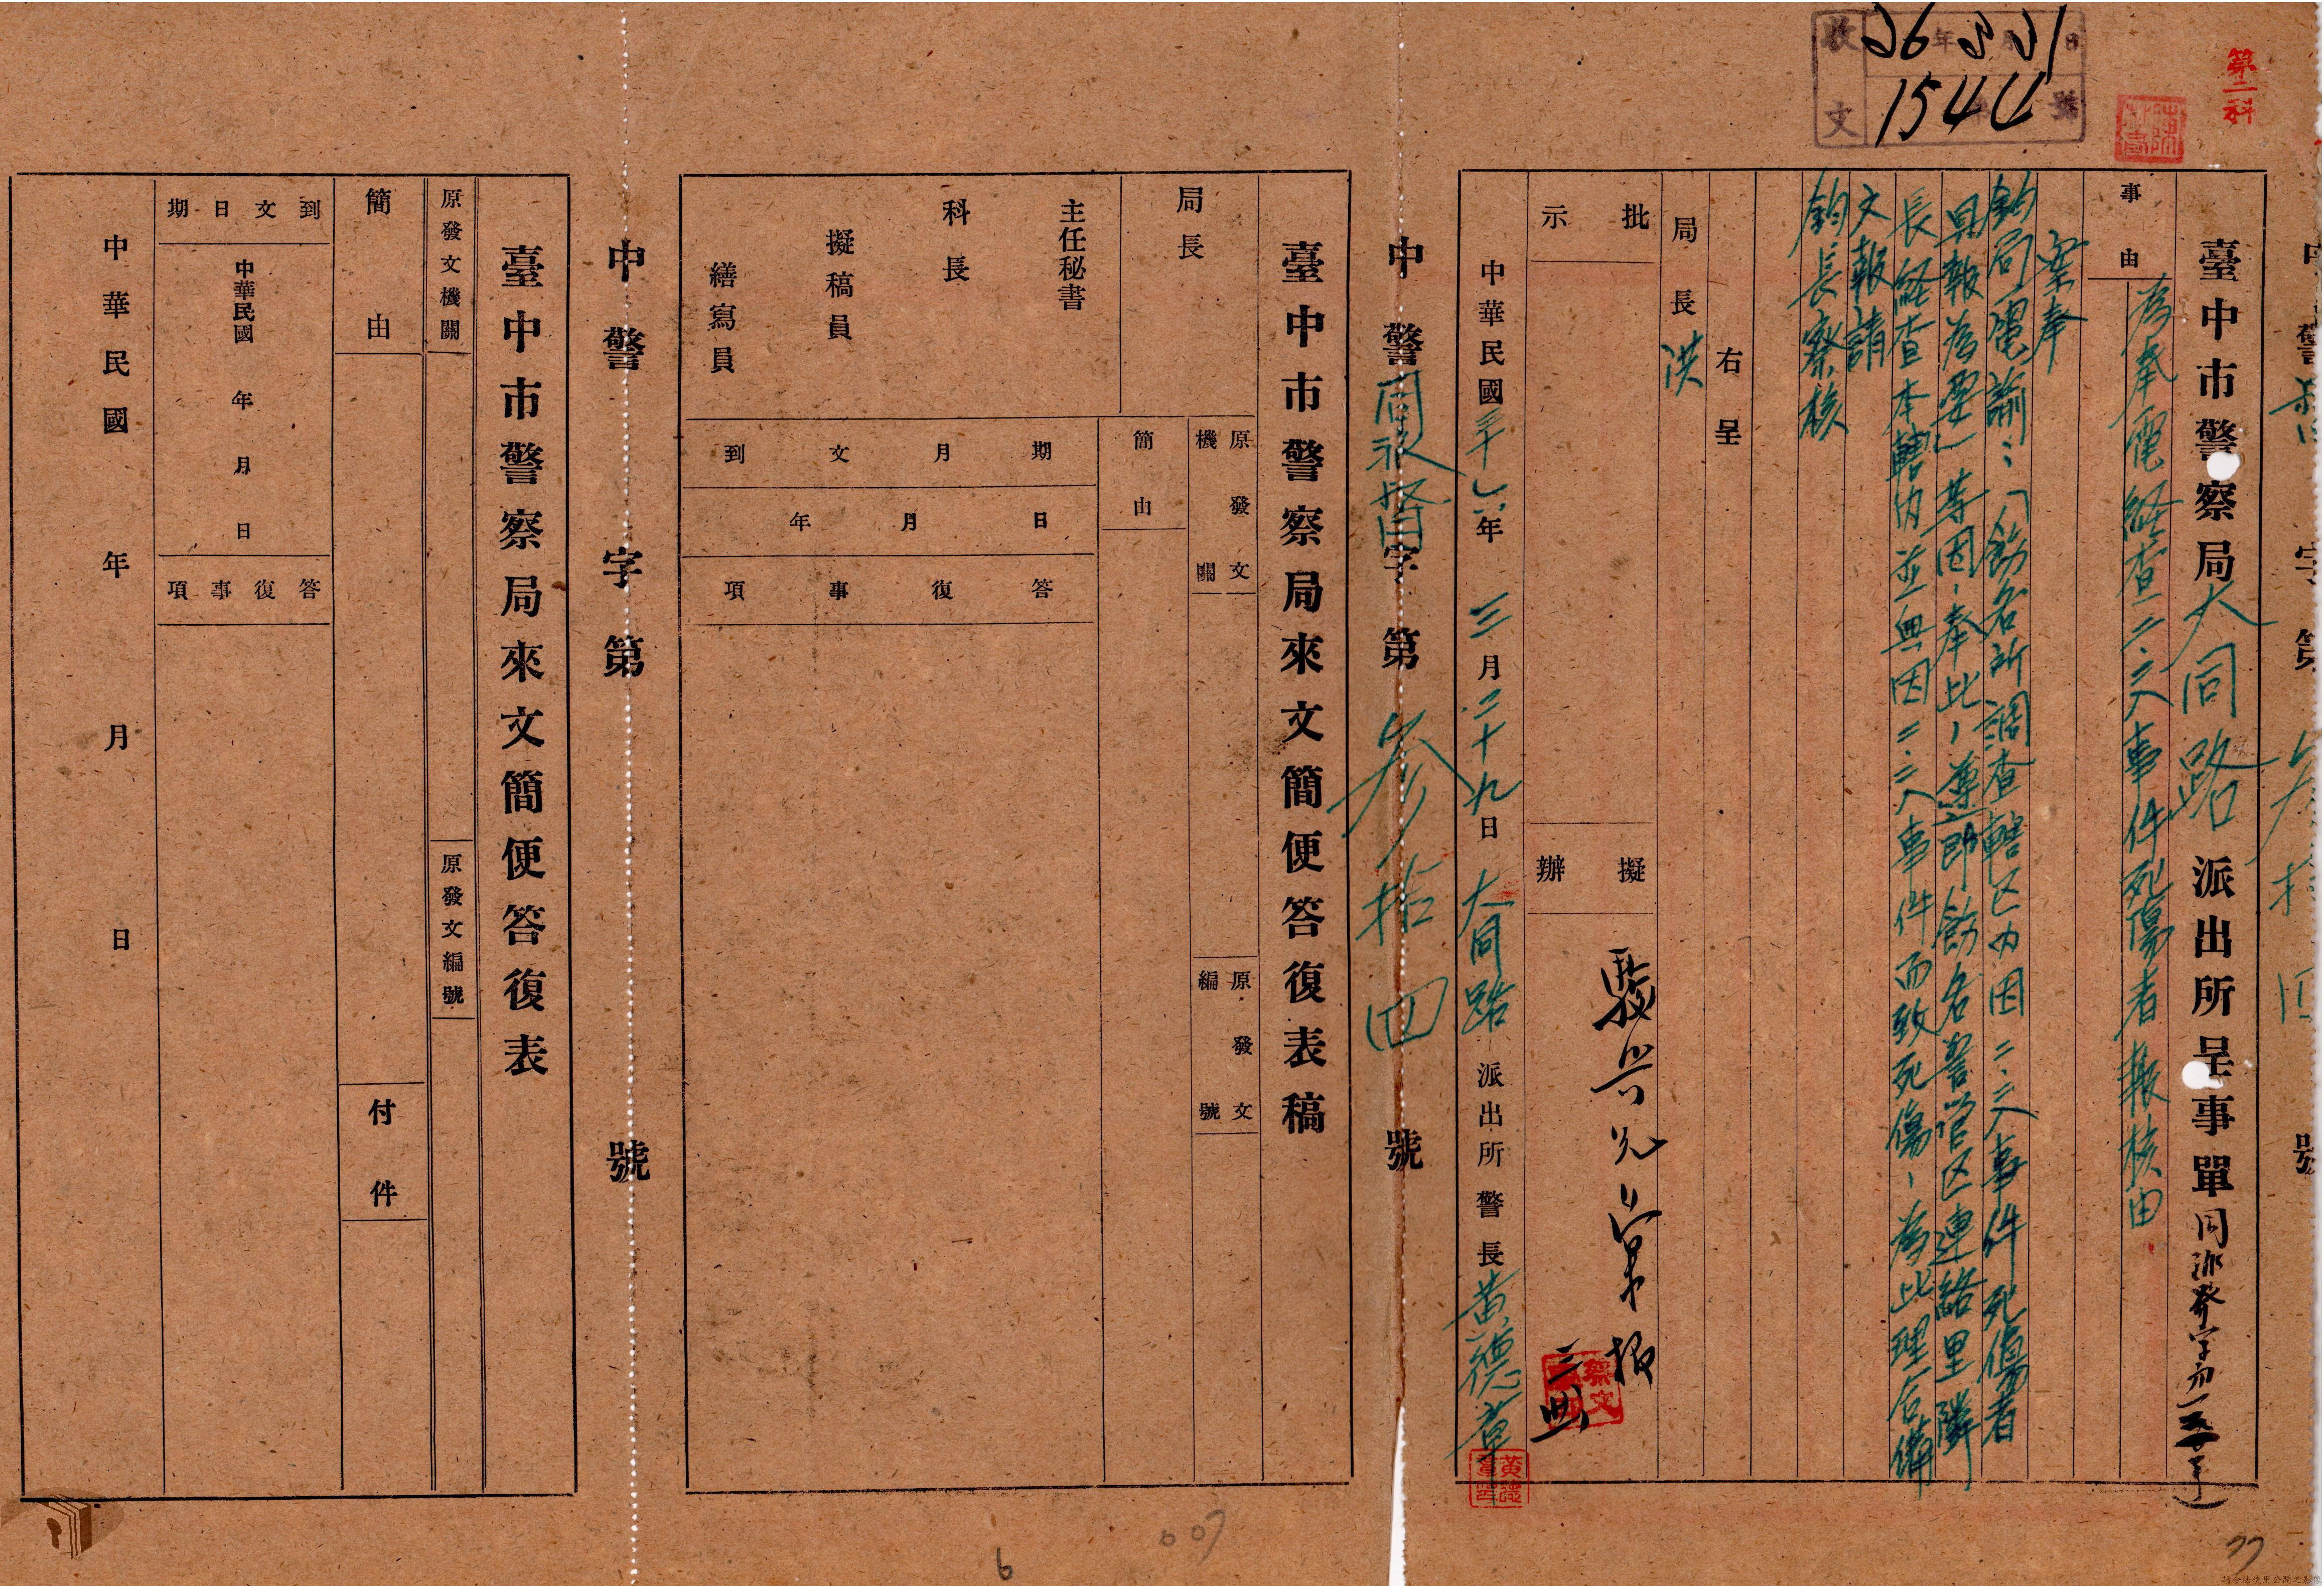 第二科
收文 36年3月31日
1544號
臺中市警察局大同路派出所呈事單
事由
為奉電経查二、二八事件死傷者報核由
案奉
鈞局電諭：「飭各所調查轄区内因二、二八事件死傷者
具報為要」等因、奉此、遵即飭各警管区連絡里鄰
長経查本轄内並無因二、二八事件而致死傷、為此理合備
文報請
鈞長察核
右呈
局長 洪
批示
擬辦
彙報
中華民國三十六年三月二十九日 大同路派出所警長 黃德章
黃德章印
中警 字第 參拾四 號
臺中市警察局來文簡便答復表稿
原發文機關
原發文編號
局長
簡由
主任秘書
科長
擬稿員
繕寫員
到文月期
年月日
答復事項
中警 字第 號
臺中市警察局來文簡便答復表
原發文機關
原發文編號
簡由
付件
到文日期
中華民國 年 月 日
答復事項
中華民國 年 月 日
6
007
77